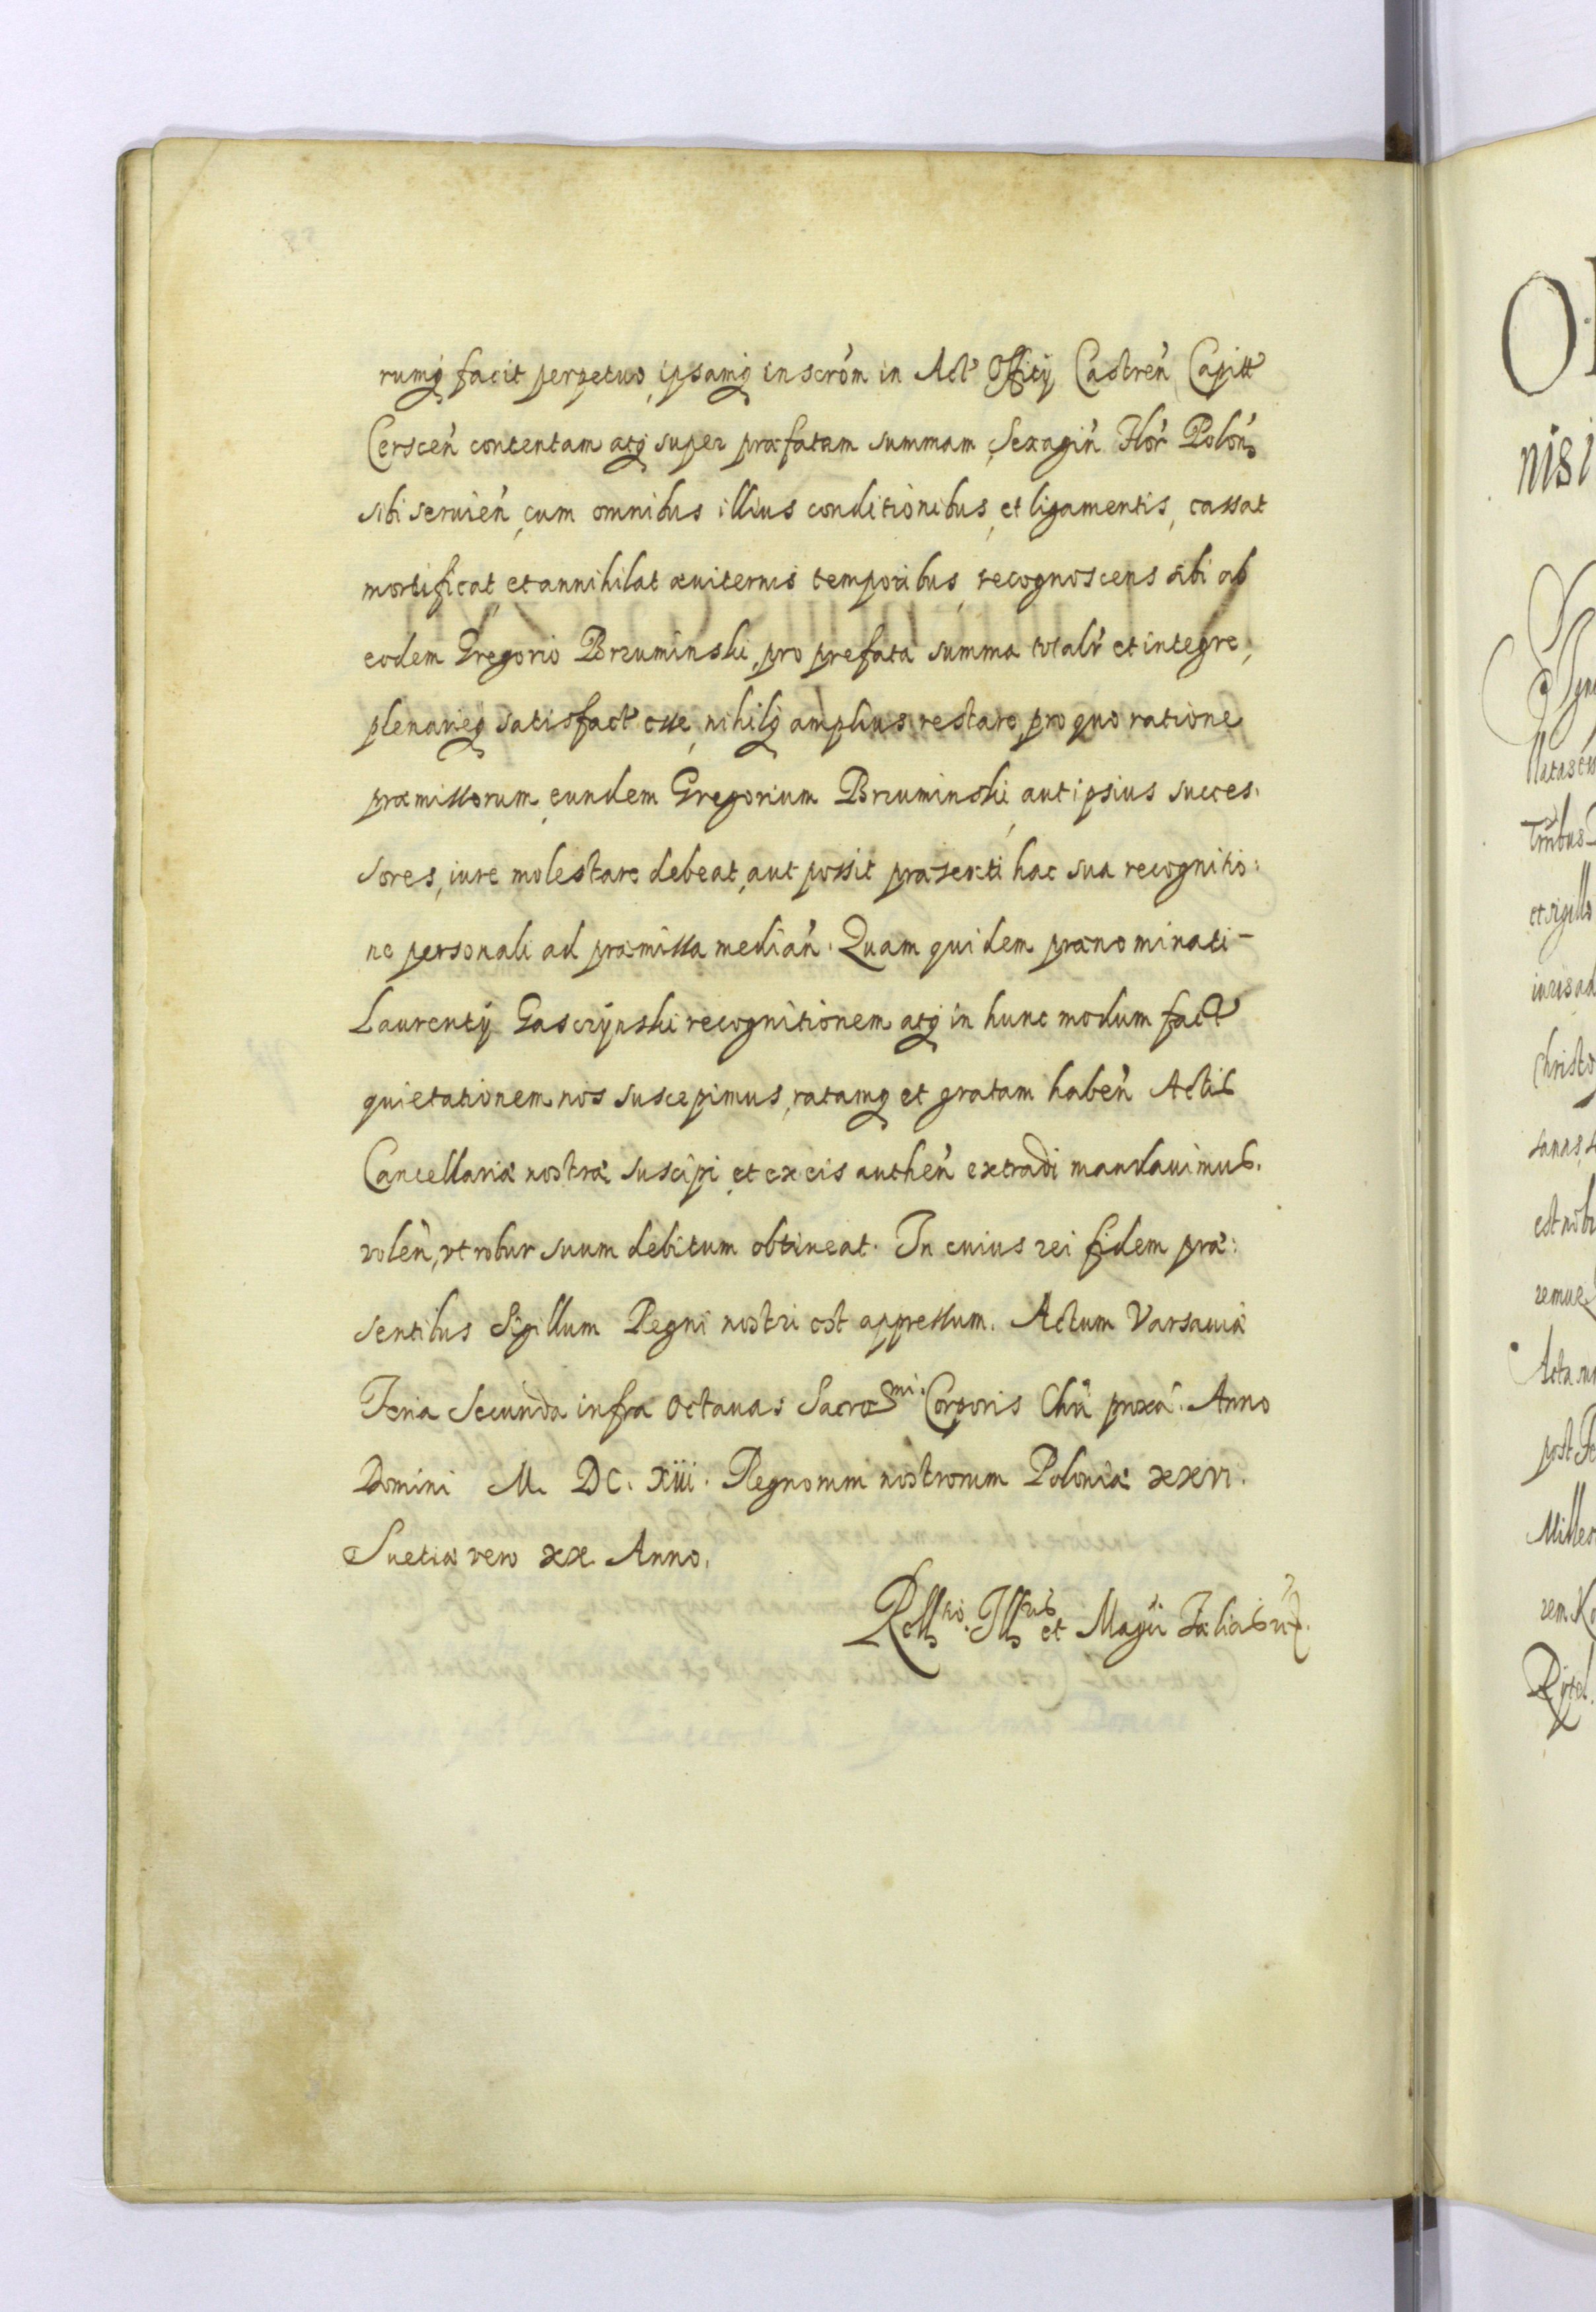 rumq facit perpetuo, ipsamq inscrõm in Act Officÿ Castreñ Capitt
Cersceñ contentam atq super præfatam summam Sexagiñ Flor Poloñ
sibi seruieñ, cum omnibus illius conditionibus, et ligamentis, cassat
mortificat, et annihilat æuiternis temporibus, recognoscens sibi ab
eodem Gregorio Brzuminski, pro prefata summa totalr et integre,
plenarieq satisfact esse, nihilq amplius restare, pro quo ratione
præmissorum, eundem Gregorium Brzuminski, aut ipsius succes:
sores, iure molestare debeat, aut possit præsenti hac sua recognitio:
ne personali ad præmissa mediañ. Quam quidem prænominati-
Laurentÿ Gasczÿnski recognitionem atq in hunc modum fact
quietationem nos suscepimus, ratamq et gratam habeñ Actis
Cancellariæ nostræ suscipi, et ex eis autheñ extradi mandauimus.
voleñ, vt robur suum debitum obtineat. In cuius rei fidem præ:
sentibus Sigillum Regni nostri est appressum. Actum Varsauiæ
Feria Secunda infra Octauas Sacro Smi. Corporis Chri proxa. Anno
Domini M. DC. Xiii. Regnorum nostrorum Poloniæ xxvi.
Suetiæ vero xx Anno.
Rell et Magci
O
nisi
llatas
et sigillo
Christo
sanas
Acta
post